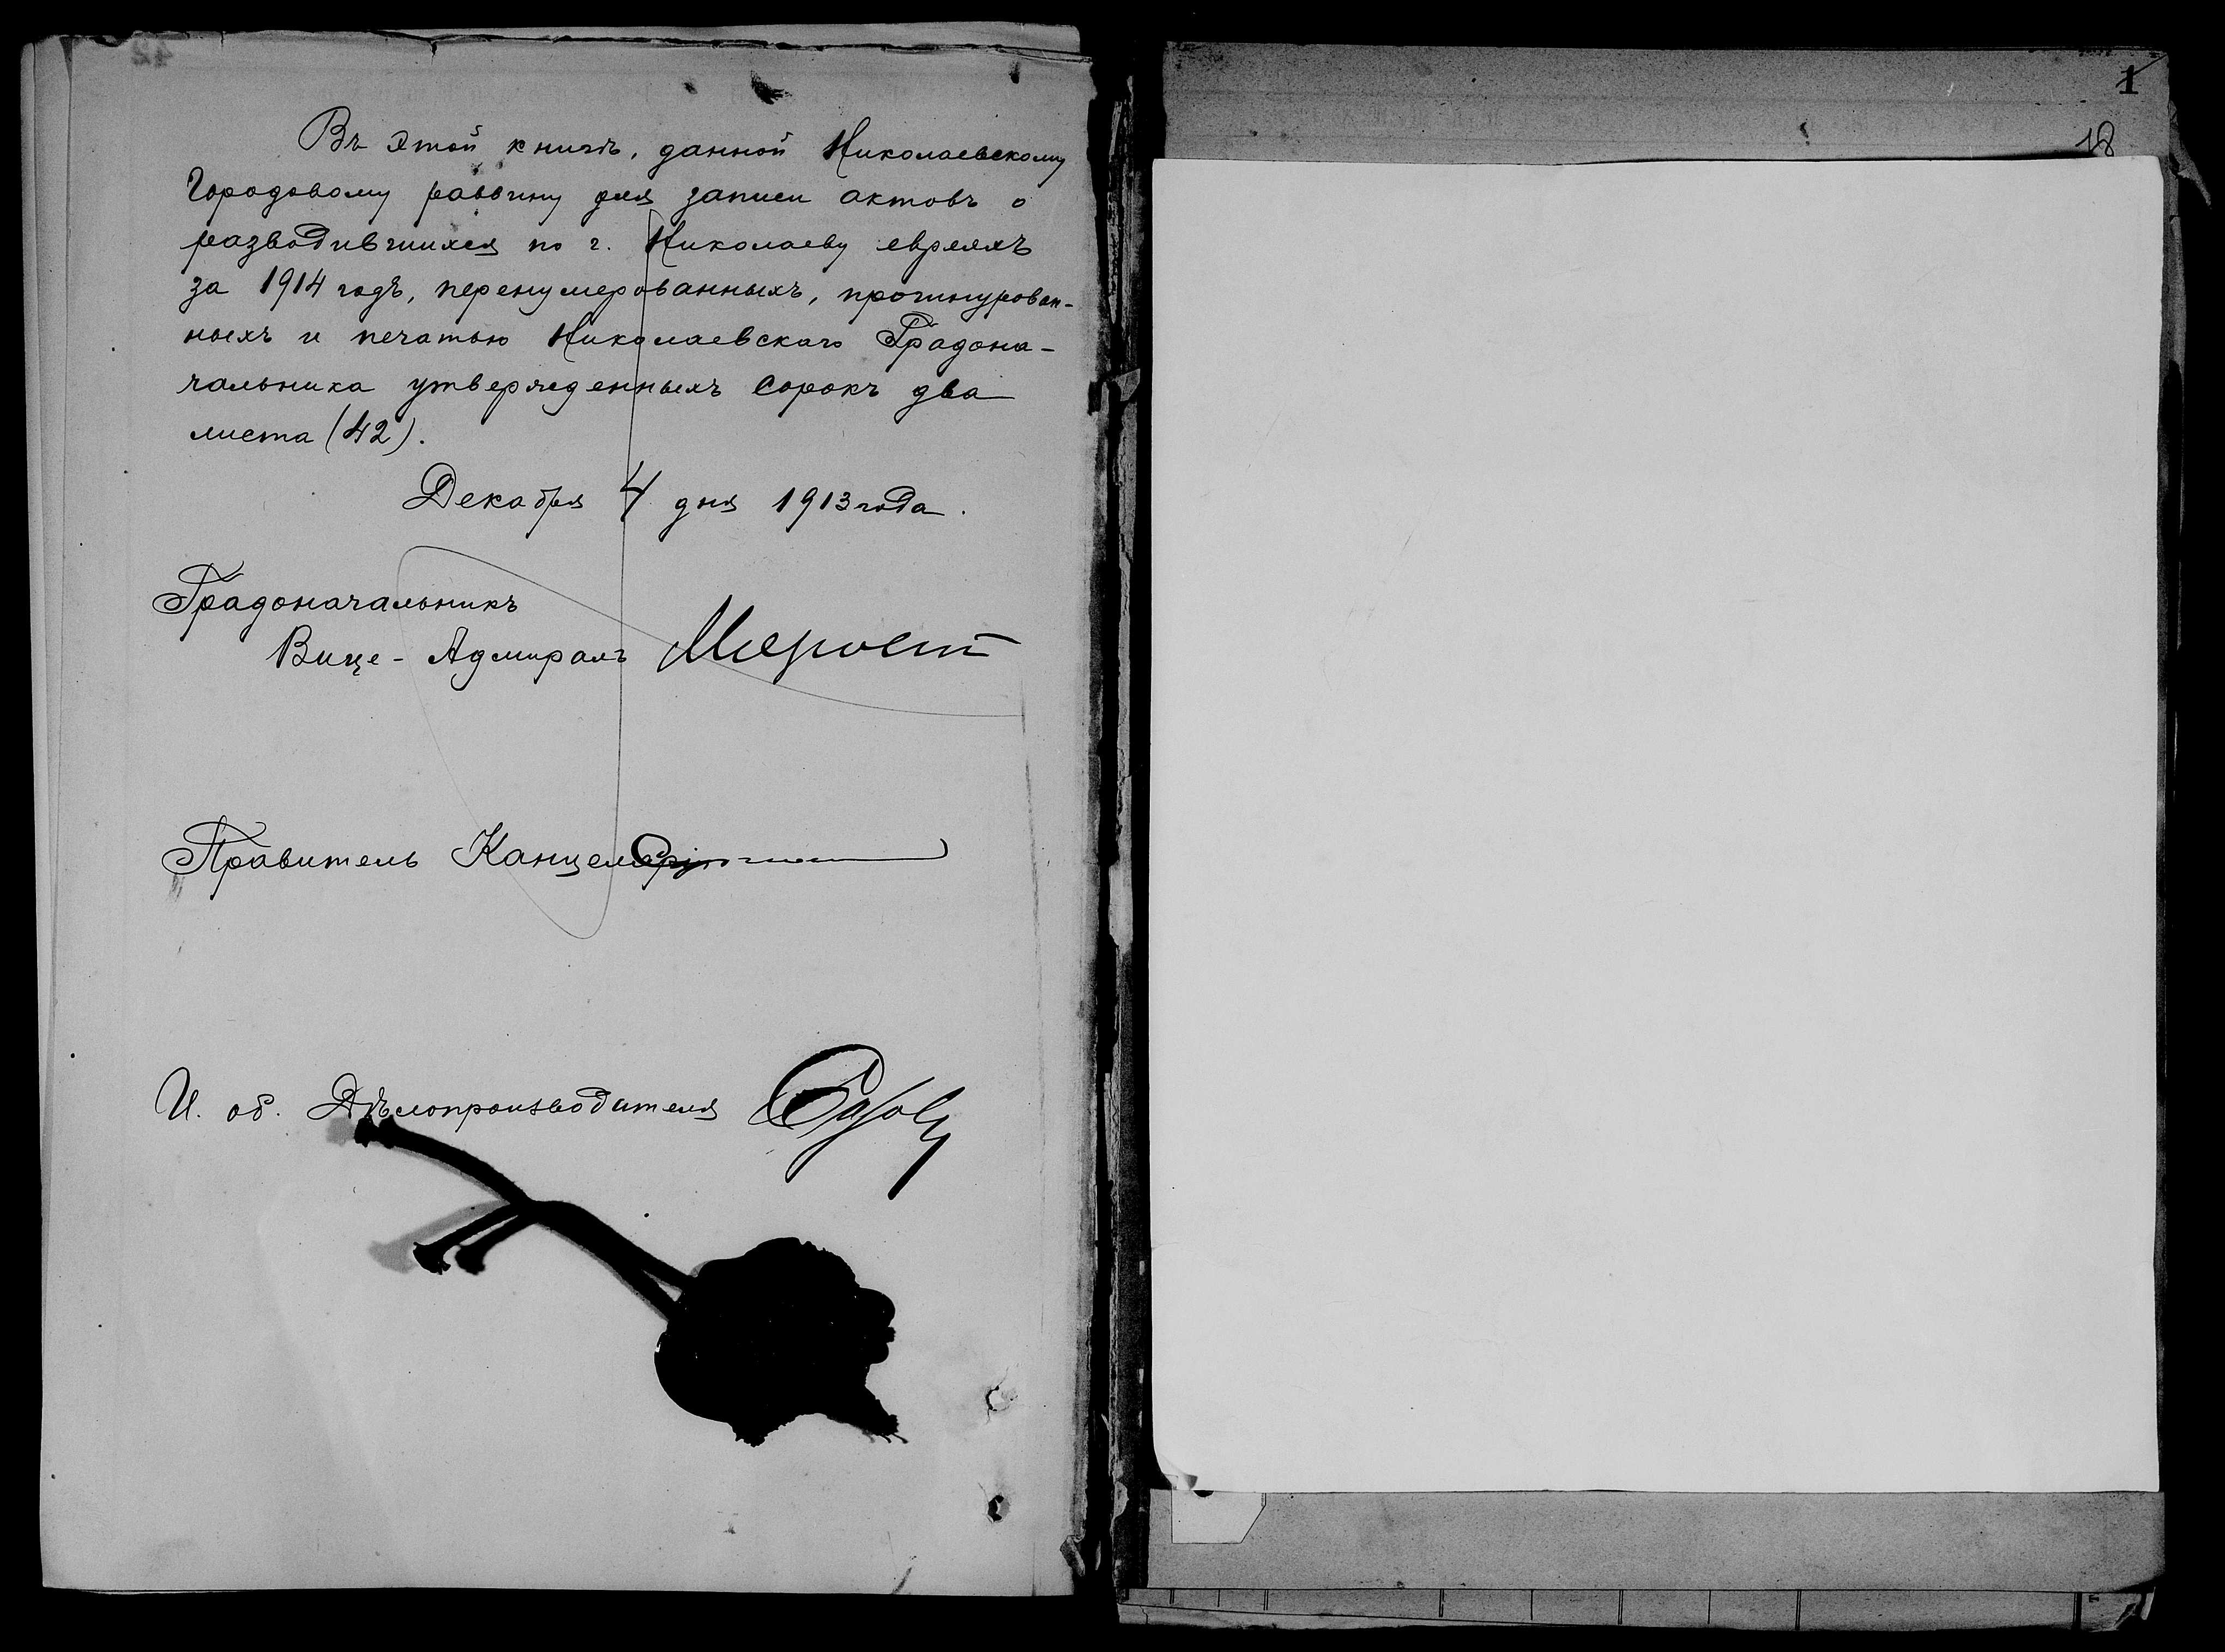 Въ этой книгѣ, данной Николаевскому
Городовому раввину для записи актовъ о
разводившихся по г. Николаеву евреяхъ
за 1914 годъ, перенумерованныхъ, прошнурован-
ныхъ и печатью Николаевскаго Градона-
чальника утвержденныхъ сорокъ два
листа (42).
Декабря 4 дня 1913 года.
Градоначальникъ
Вице-Адмиралъ
Правитель Канцеляріи
И. об. Дѣлопроизводителя
1
18